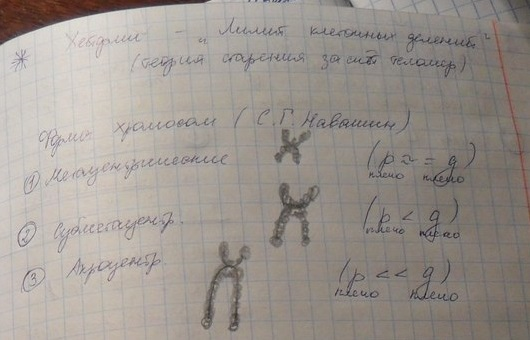 * Хейфлик - „Лимит клеточных делений“
(теория старения за счёт теломер)
Формы хромосом (С.Г. Навашин)
① Метацентрические (p ≈ = q)
плечо плечо
② Субметацентр. (p < q)
плечо плечо
③ Акроцентр. (p << q)
плечо плечо